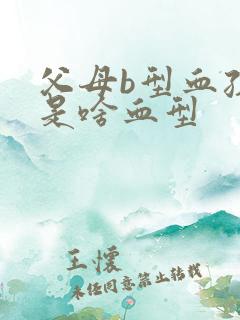 父母b型血孩
是啥血型
王怀
未经同意禁止转载